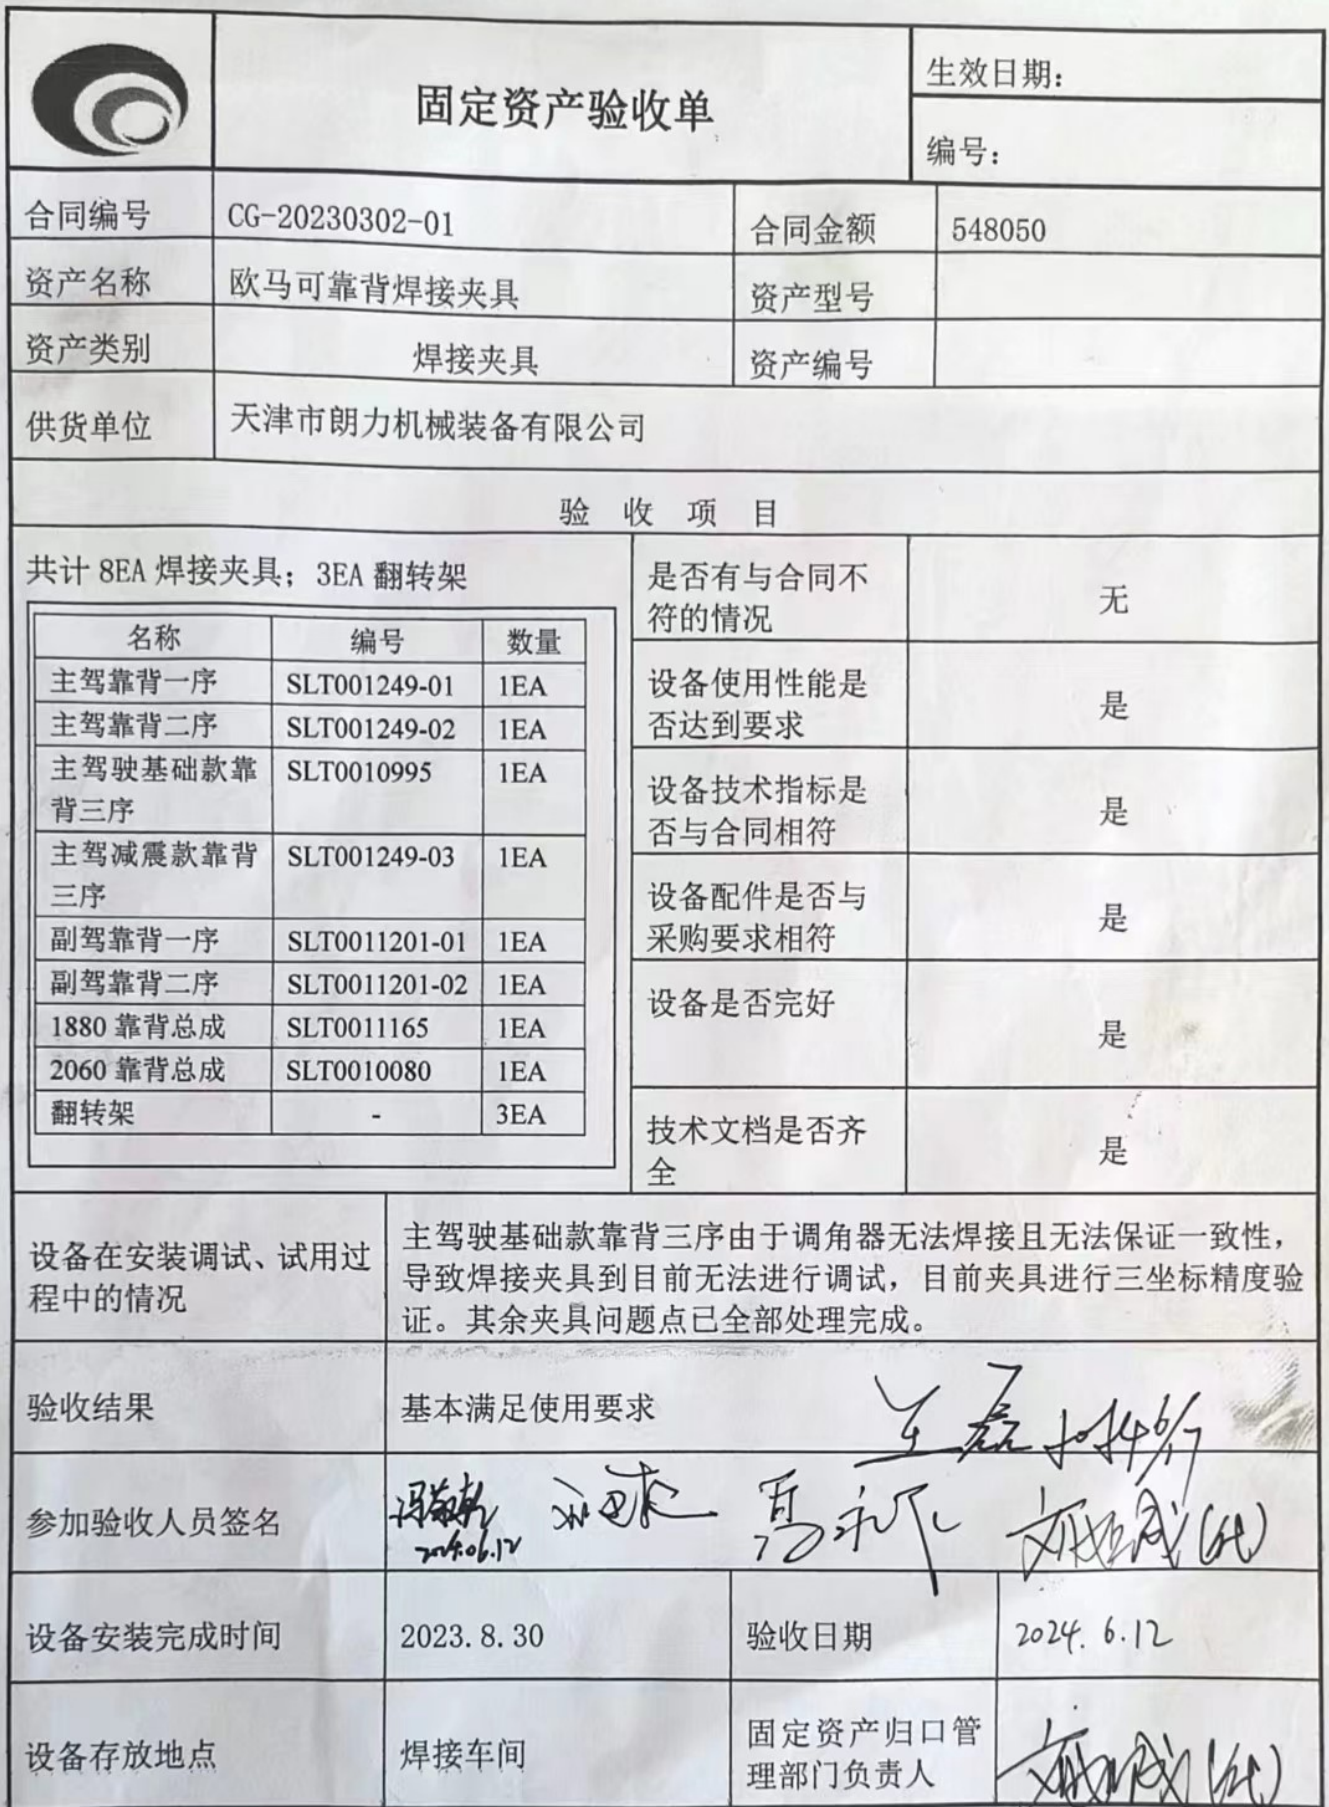 固定资产验收单
生效日期：
编号：
合同编号 CG-20230302-01 合同金额 548050
资产名称 欧马可靠背焊接夹具 资产型号
资产类别 焊接夹具 资产编号
供货单位 天津市朗力机械装备有限公司
验收项目
共计 8EA 焊接夹具；3EA 翻转架
名称 编号 数量
主驾靠背一序 SLT001249-01 1EA
主驾靠背二序 SLT001249-02 1EA
主驾驶基础款靠 SLT0010995 1EA
背三序
主驾减震款靠背 SLT001249-03 1EA
三序
副驾靠背一序 SLT0011201-01 1EA
副驾靠背二序 SLT0011201-02 1EA
1880 靠背总成 SLT0011165 1EA
2060 靠背总成 SLT0010080 1EA
翻转架 - 3EA
是否有与合同不
符的情况
无
设备使用性能是
否达到要求
是
设备技术指标是
否与合同相符
是
设备配件是否与
采购要求相符
是
设备是否完好
是
技术文档是否齐
全
是
设备在安装调试、试用过
程中的情况
主驾驶基础款靠背三序由于调角器无法焊接且无法保证一致性，
导致焊接夹具到目前无法进行调试，目前夹具进行三坐标精度验
证。其余夹具问题点已全部处理完成。
验收结果 基本满足使用要求
王磊 2024 6/17
参加验收人员签名
2024.06.12
设备安装完成时间 2023.8.30 验收日期 2024.6.12
设备存放地点 焊接车间
固定资产归口管
理部门负责人